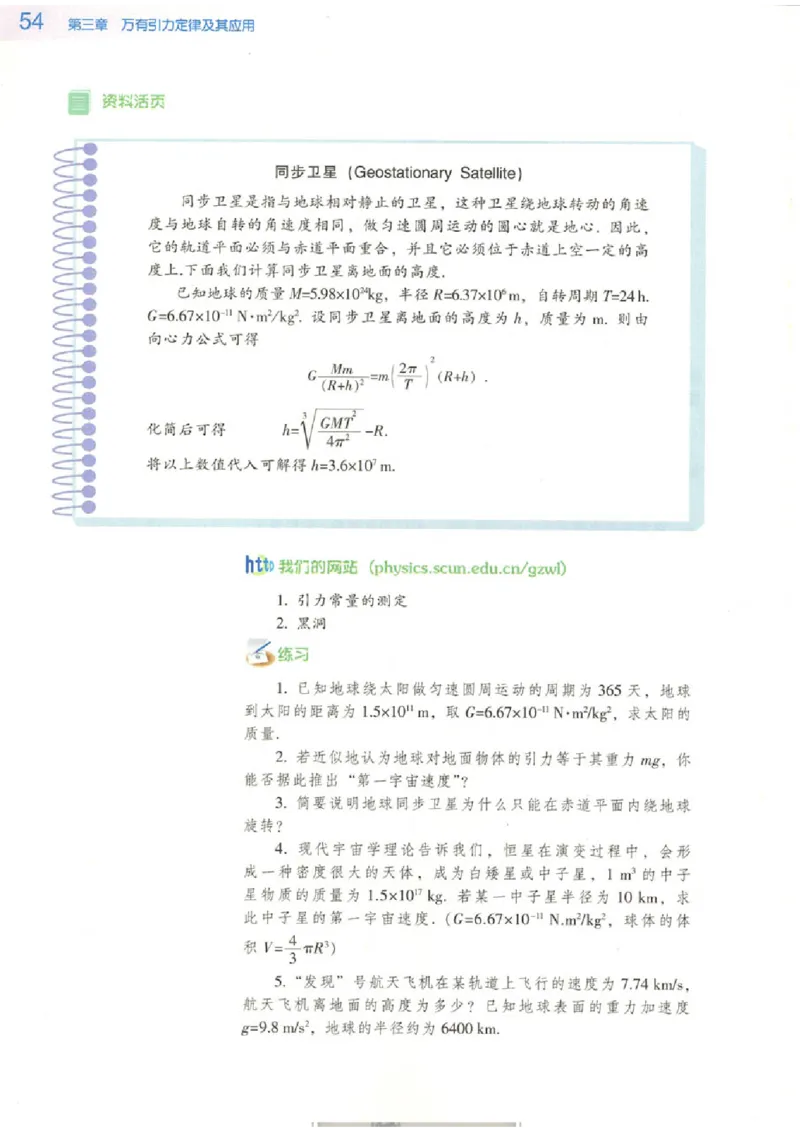 54 第三章 万有引力定律及其应用
资料活页
同步卫星 (Geostationary Satellite)
同步卫星是指与地球相对静止的卫星，这种卫星绕地球转动的角速
度与地球自转的角速度相同，做匀速圆周运动的圆心就是地心. 因此，
它的轨道平面必须与赤道平面重合，并且它必须位于赤道上空一定的高
度上.下面我们计算同步卫星离地面的高度.
已知地球的质量 M=5.98×10²⁴kg，半径 R=6.37×10⁶ m，自转周期 T=24 h.
G=6.67×10⁻¹¹ N·m²/kg². 设同步卫星离地面的高度为 h，质量为 m. 则由
向心力公式可得
G Mm/(R+h)² =m(2π/T)² (R+h) .
化简后可得 h=∛(GMT²/4π²) -R.
将以上数值代入可解得 h=3.6×10⁷ m.
http 我们的网站 (physics.scun.edu.cn/gzwl)
1. 引力常量的测定
2. 黑洞
练习
1. 已知地球绕太阳做匀速圆周运动的周期为 365 天，地球
到太阳的距离为 1.5×10¹¹ m，取 G=6.67×10⁻¹¹ N·m²/kg²，求太阳的
质量.
2. 若近似地认为地球对地面物体的引力等于其重力 mg，你
能否据此推出“第一宇宙速度”?
3. 简要说明地球同步卫星为什么只能在赤道平面内绕地球
旋转?
4. 现代宇宙学理论告诉我们，恒星在演变过程中，会形
成一种密度很大的天体，成为白矮星或中子星，1 m³ 的中子
星物质的质量为 1.5×10¹⁷ kg. 若某一中子星半径为 10 km，求
此中子星的第一宇宙速度. (G=6.67×10⁻¹¹ N.m²/kg²，球体的体
积 V=4/3 πR³)
5. “发现”号航天飞机在某轨道上飞行的速度为 7.74 km/s，
航天飞机离地面的高度为多少? 已知地球表面的重力加速度
g=9.8 m/s²，地球的半径约为 6400 km.